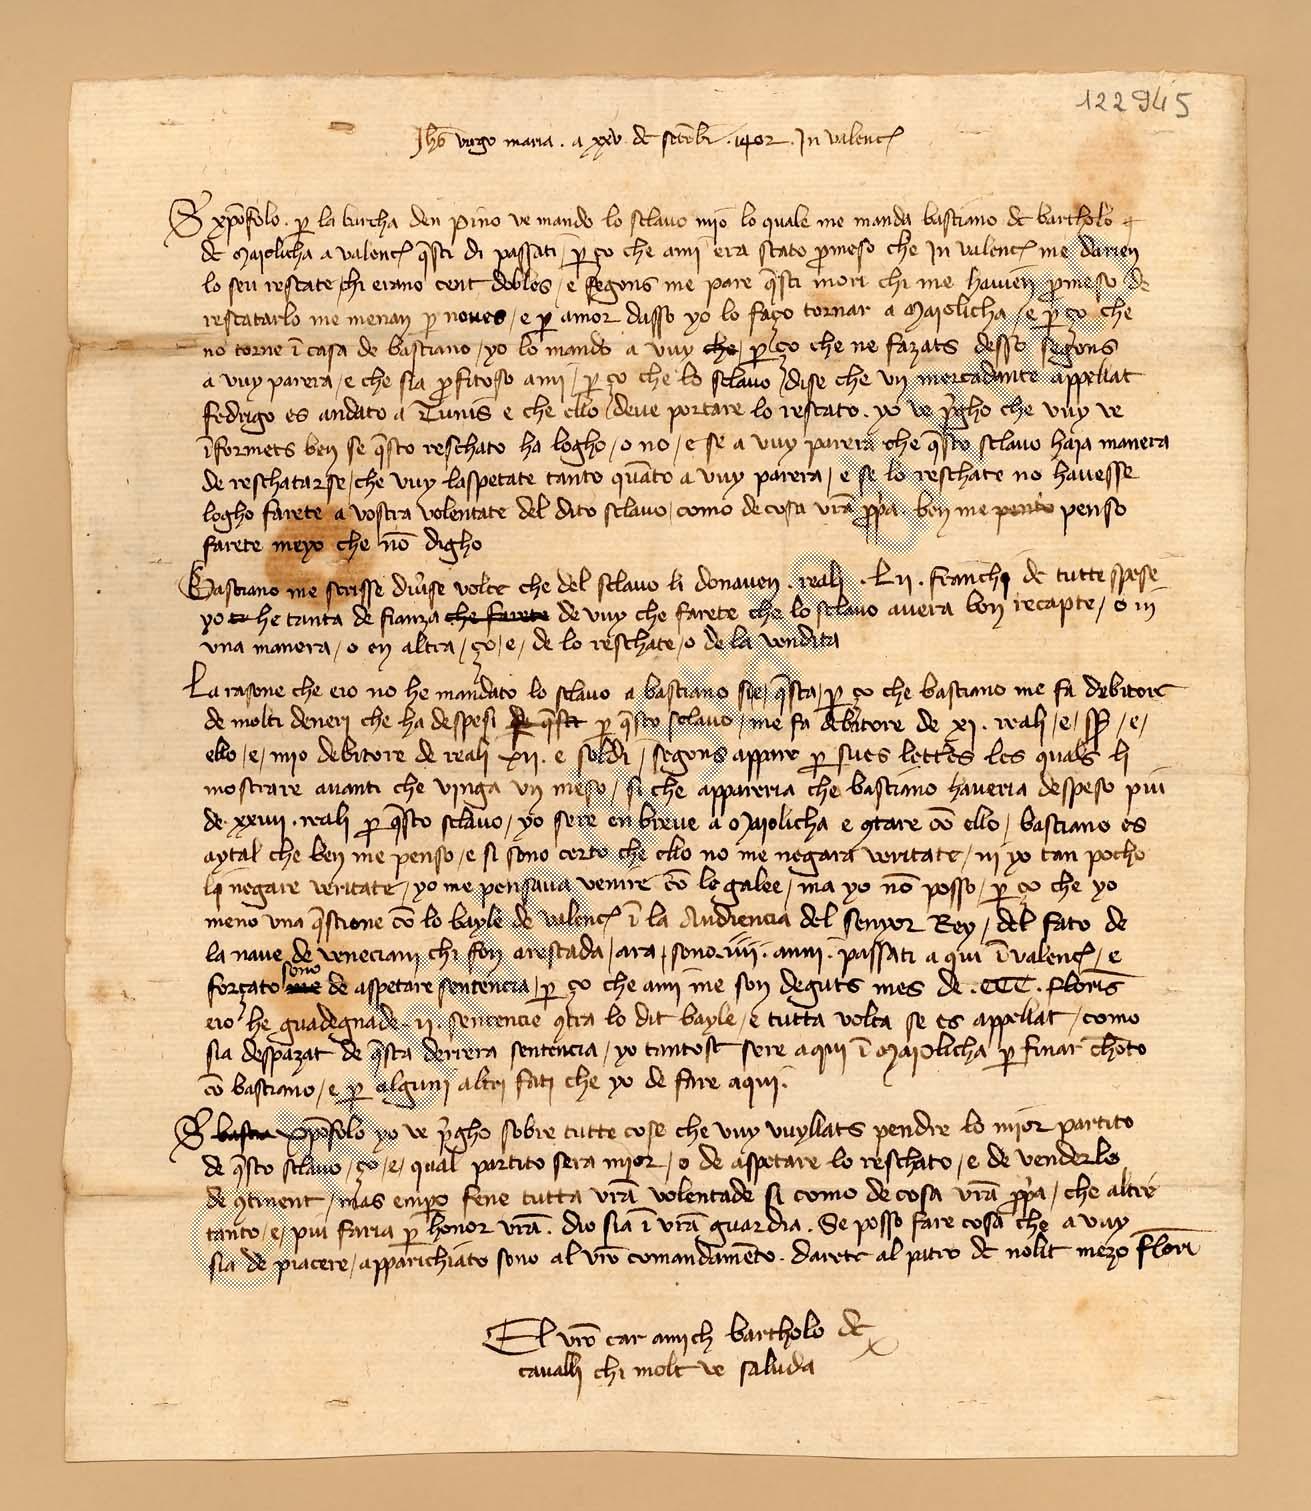 122945
Jhs virgo maria . a xxv de setembr . 1402 . In valenc
S xpofolo . p la barcha den pino ve mando lo sclavo mio lo quale me manda bastiano de bartholo
de Maiolicha a valenc qsti di passati / p ço che ami era stato pmeso che In valenc me darien
lo seu rescate / chi erano cent dobles / e segons me pare qsti mori chi me havien pmeso de
rescatarlo me menan p noves / e p amor dasso yo lo faço tornar a Maiolicha / e p ço che
no torne i casa de bastiano / yo lo mando a vuy che / p ço che ne fazats desso segons
a vuy parera / e che sia pfitoso ami / p ço che lo sclavo dise che un mercadante appellat
fedrigo es andato a Tunis e che ello deve portare lo rescato . yo ve pgho che vuy ve
iformets ben se qsto reschato ha logho / o no / e se a vuy parera che qsto sclavo haia manera
de reschatarse / che vuy laspetate tanto quato a vuy parera / e se lo reschate no havesse
logho farete a vostra volentate del dito sclavo / como de cosa vra ppa . ben me penso
farete meyo che no digho
Bastiano me scrisse divse volte che del sclavo li donaven . reali . Lii . franchi de tutte spese
yo he tanta de fianza che farete de vuy che farete che lo sclavo avera bon recapte / o in
una manera / o en altra / ço / e / de lo reschate / o de la vendita
La rasone che eio no he mandato lo sclavo a bastiano sie / qsta / p ço che bastiano me fa debitore
de molti deneri che ha despesi p qsto sclavo / me fa debitore de xi . reali / e /
ello / e / mio debitore de reali xii . e soldi / segons appare p sues lettes les quals li
mostrare avanti che vinga un meso / si che appareria che bastiano haveria despeso piu
de xxiiii . reali p qsto sclavo / yo sere en breve a Maiolicha e 9tare co ello / bastiano es
aytal che ben me penso / e si sono certo che ello no me negara veritate / ni yo tan pocho
li negare veritate / yo me pensava venire co le galee / ma yo no posso / p ço che yo
meno una qstione co lo bayle de valenc i la Audiencia del senyor Rey / del fato de
la nave de veneciani chi fon arestada / ara / sono . iiii . anni . passati a qui i valenc / e
sono
forçato me de aspetare sentencia / p ço che ami me son deguts mes de . CCC . florins
eio he guadegnade . ii . sentencie 9tra lo dit bayle / e tutta volta se es appellat / como
sia despazat de qsta derrera sentencia / yo tantost sere aqui i Maiolicha p finar choto
co bastiano / e p alguni altri fati che yo de fare aqui .
S xpofolo yo ve pgho sobre tutte cose che vuy vuyllats pendre lo mior partito
de qsto sclavo / ço / e / qual partito sera mior / o de aspetare lo reschato / e de venderlo
de 9tinent / mas empo fene tutta vra volentade si como de cosa vra ppa / che altre
tanto / e / piu faria p honor vra . dio sia i vra guardia . Se posso fare cosa che a vuy
sia de piacere / apparichiato sono al vro comandamento . darete al patro de nolit mezo flori
El vro car amich bartholo de
cavalli chi molt ve saluda